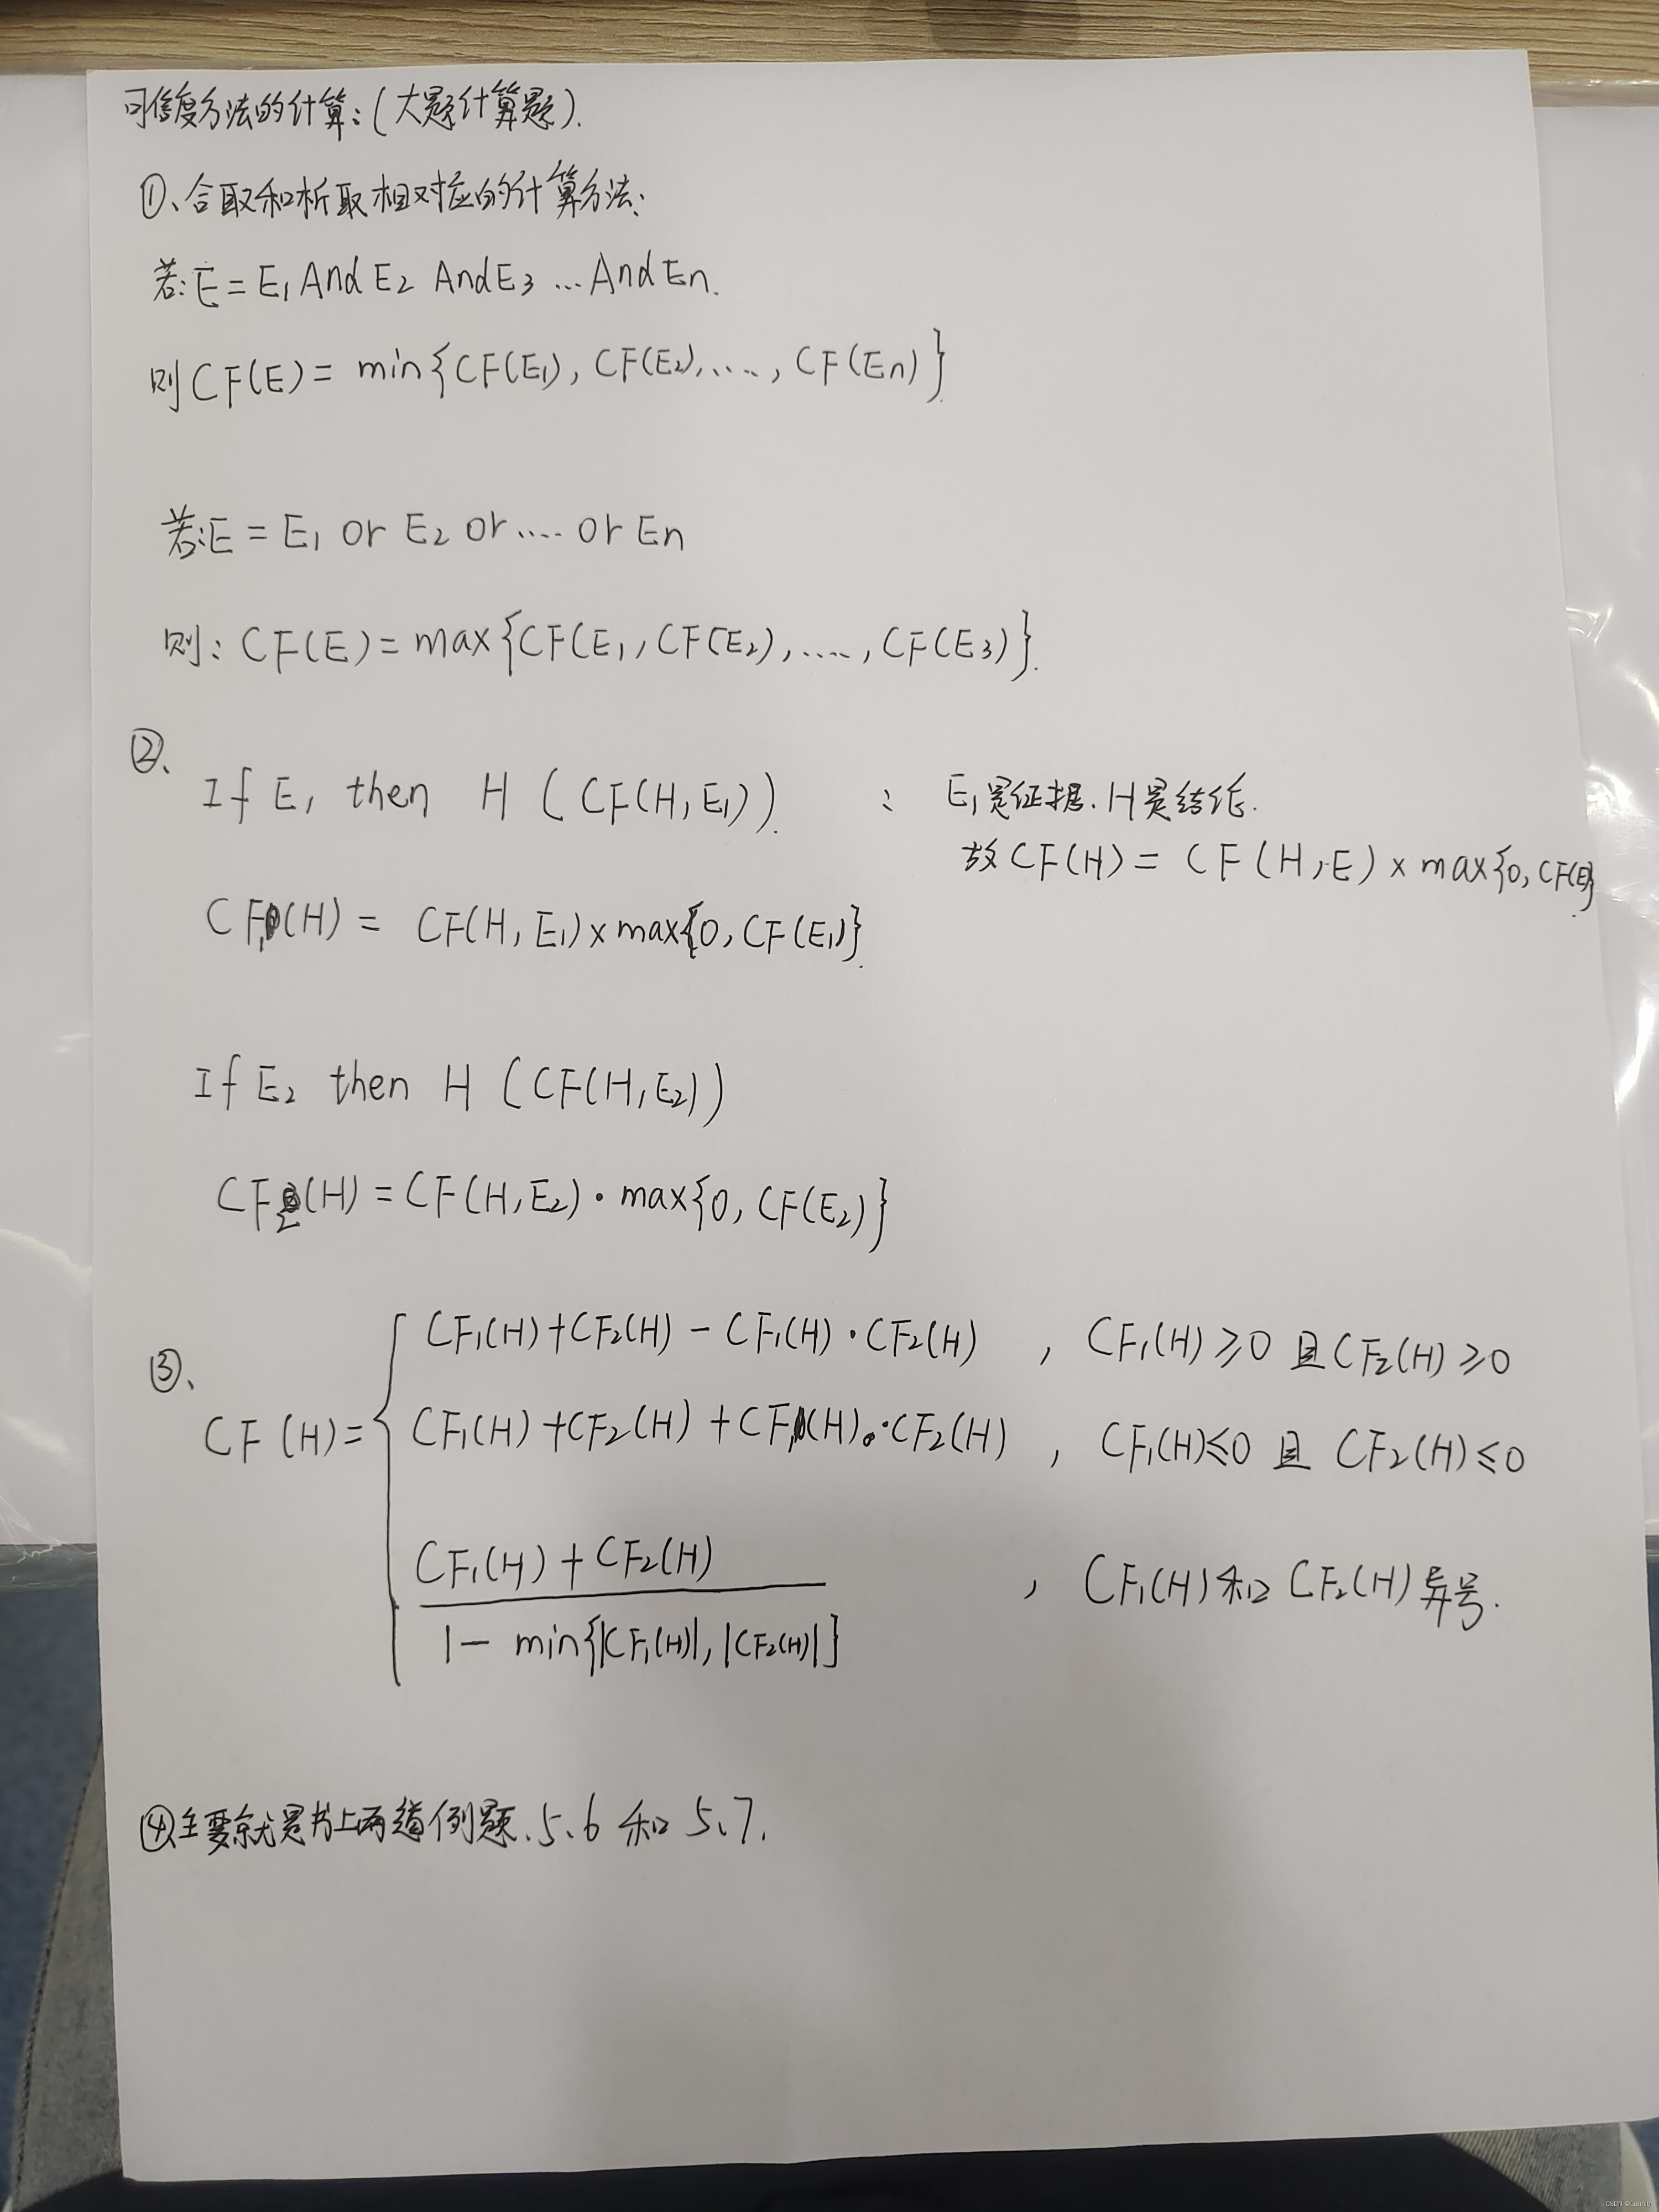 可信度方法的计算:(大题计算题).
①、合取和析取相对应的计算方法:
若:E = E₁ And E₂ And E₃ ... And En.
则 CF(E) = min{CF(E₁), CF(E₂), ...., CF(En)}.
若:E = E₁ or E₂ or .... or En
则: CF(E) = max{CF(E₁, CF(E₂), ...., CF(E₃)}.
②、
If E₁ then H (CF(H,E₁)). : E₁是证据. H是结论.
故 CF(H) = CF(H,E) × max{0, CF(E)}.
CF₁(H) = CF(H,E₁) × max{0, CF(E₁)}.
If E₂ then H (CF(H,E₂))
CF₂(H) = CF(H,E₂) · max{0, CF(E₂)}
③、
CF(H) =
CF₁(H) + CF₂(H) - CF₁(H) · CF₂(H) , CF₁(H) ≥ 0 且 CF₂(H) ≥ 0
CF₁(H) + CF₂(H) + CF₁(H) · CF₂(H) , CF₁(H) ≤ 0 且 CF₂(H) ≤ 0
CF₁(H) + CF₂(H)
1 - min{|CF₁(H)|, |CF₂(H)|} , CF₁(H) 和 CF₂(H) 异号.
④主要就是书上两道例题、5、6 和 5、7.